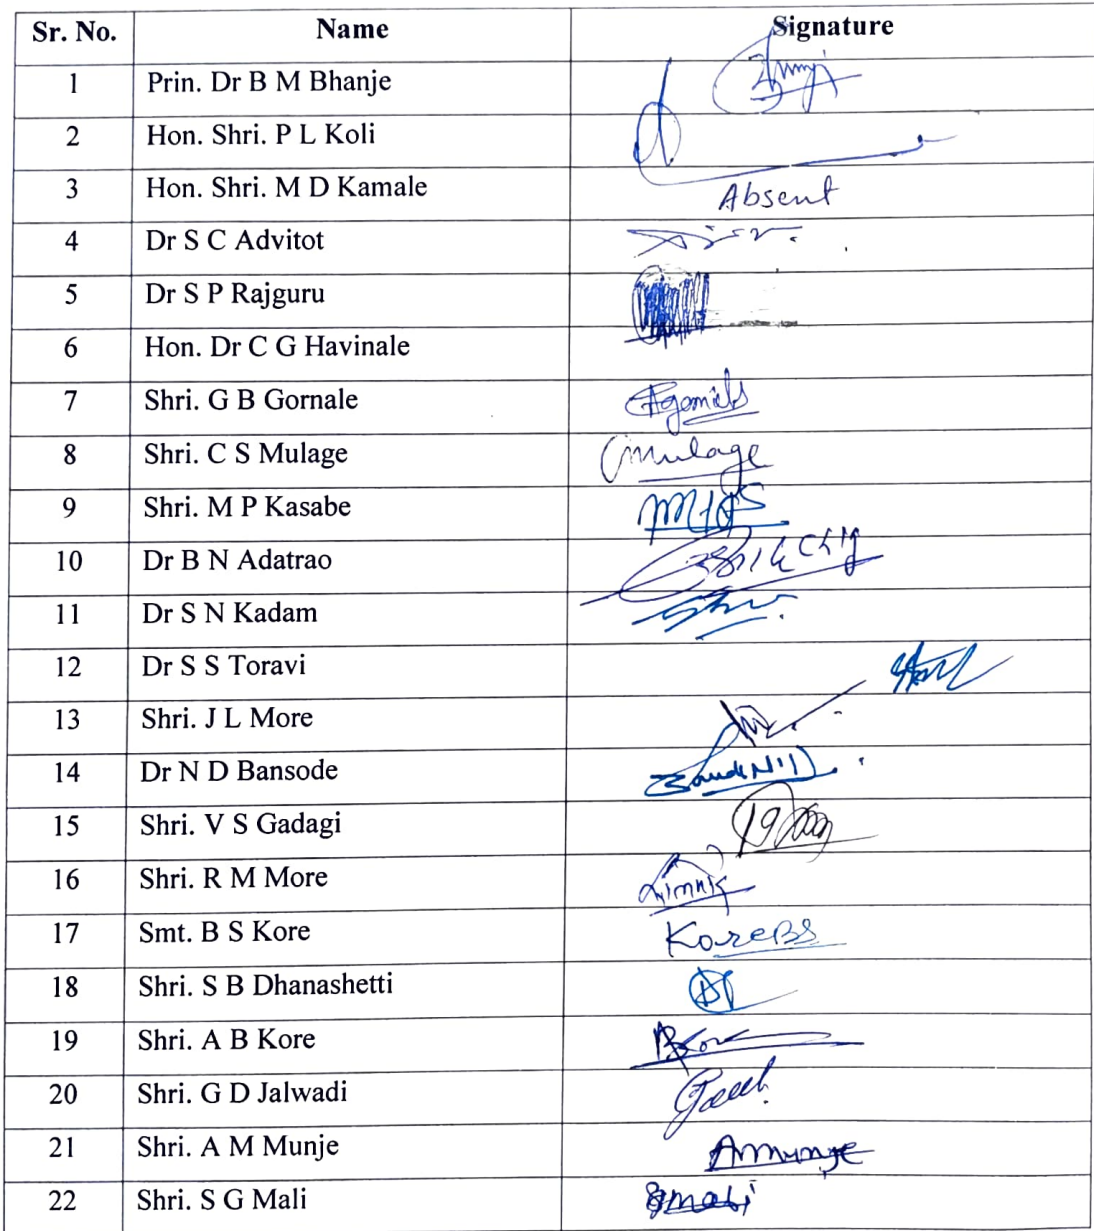 Sr. No. Name Signature
1 Prin. Dr B M Bhanje
2 Hon. Shri. P L Koli
3 Hon. Shri. M D Kamale Absent
4 Dr S C Advitot
5 Dr S P Rajguru
6 Hon. Dr C G Havinale
7 Shri. G B Gornale
8 Shri. C S Mulage Mulage
9 Shri. M P Kasabe
10 Dr B N Adatrao
11 Dr S N Kadam
12 Dr S S Toravi
13 Shri. J L More
14 Dr N D Bansode
15 Shri. V S Gadagi
16 Shri. R M More
17 Smt. B S Kore KoreBS
18 Shri. S B Dhanashetti
19 Shri. A B Kore
20 Shri. G D Jalwadi
21 Shri. A M Munje AMunje
22 Shri. S G Mali SMali